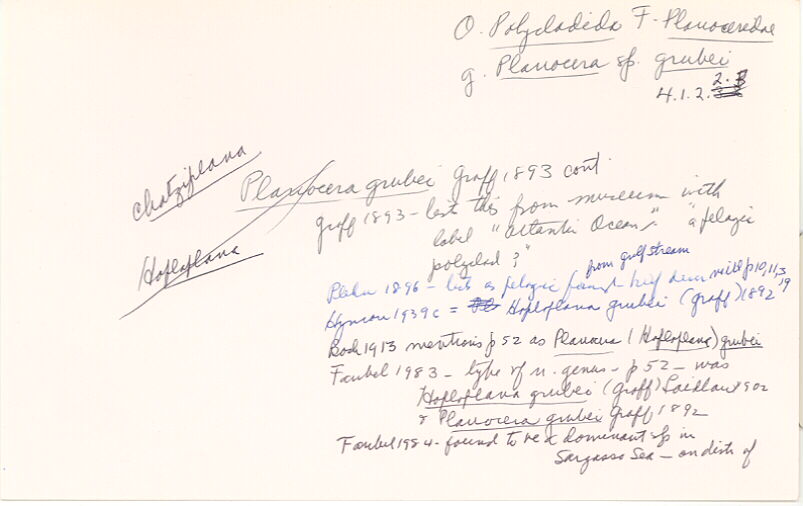 O. Polycladida F. Planoceridae
g. Planocera sp. grubei
4.1.2.
2.
Chatziplana
Planocera grubei Graff 1893 cont
Hoploplana
Graff 1893 - lost this from museum with
label "Atlantic Ocean". "a pelagic
polyclad?"
from gulf stream
Plehn 1896 - lists as pelagic found - brief p10, 11,
Hyman 1939c = Hoploplana grubei (Graff) 1892
Bock 1913 mentions p 52 as Planocera (Hoploplana) grubei
Faubel 1983 - type of n. genus - p 52 - was
Hoploplana grubei (Graff) Laidlaw 1902
& Planocera grubei Graff 1892
Faubel 1984 - found to be a dominant sp in
Sargasso Sea - on distr of